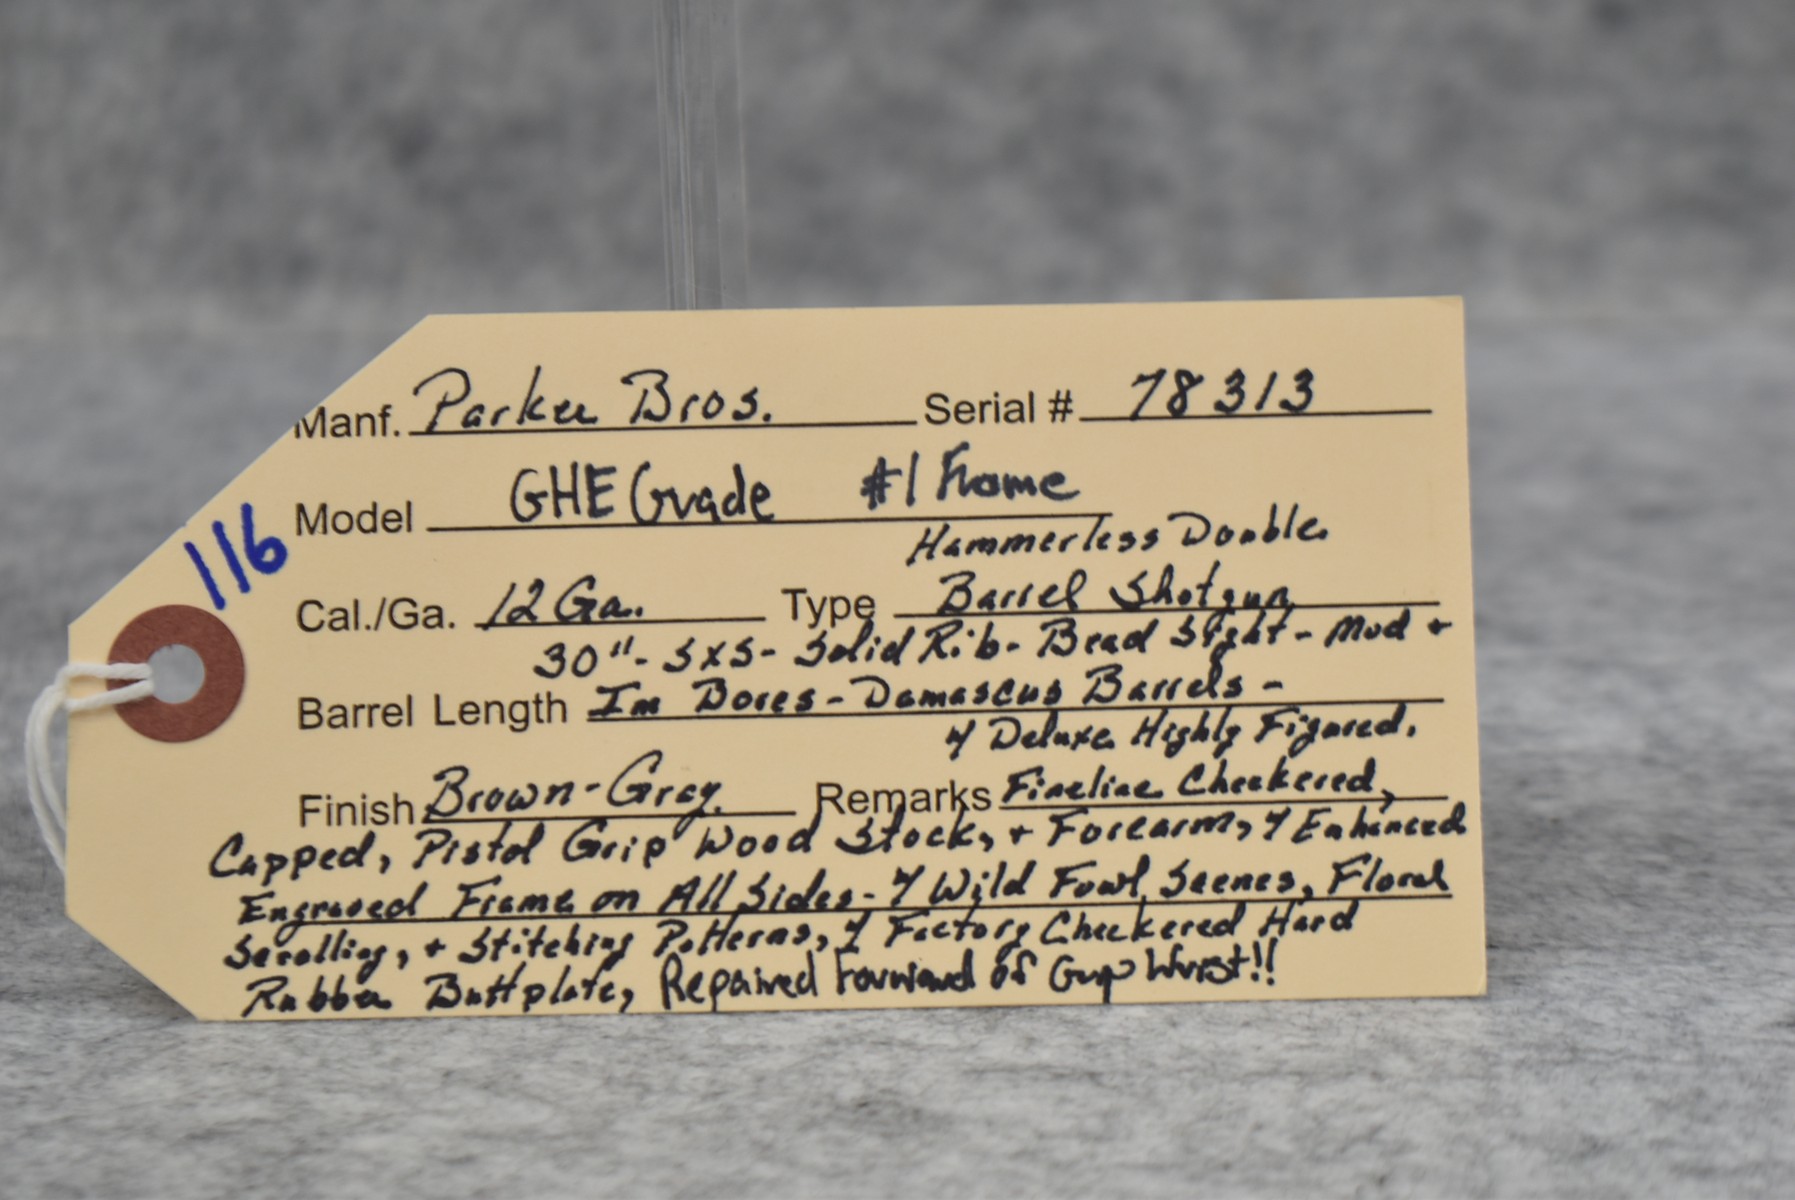 Manf. Parker Bros. Serial # 78313
Model GHE Grade #1 Frame
116
Hammerless Double
Cal./Ga. 12 Ga. Type Barrel Shotgun
30" - SXS - Solid Rib - Bead Sight - Mod +
Barrel Length Im Bores - Damascus Barrels -
w/ Deluxe Highly Figured,
Finish Brown-Gray Remarks Fineline Checkered,
Capped, Pistol Grip Wood Stock, + Forearm, w/ Enhanced
Engraved Frame on All Sides - w/ Wild Fowl Scenes, Floral
Scrolling, + Stitching Patterns, w/ Factory Checkered Hard
Rubber Buttplate, Repaired Forward of Grip Wrist!!